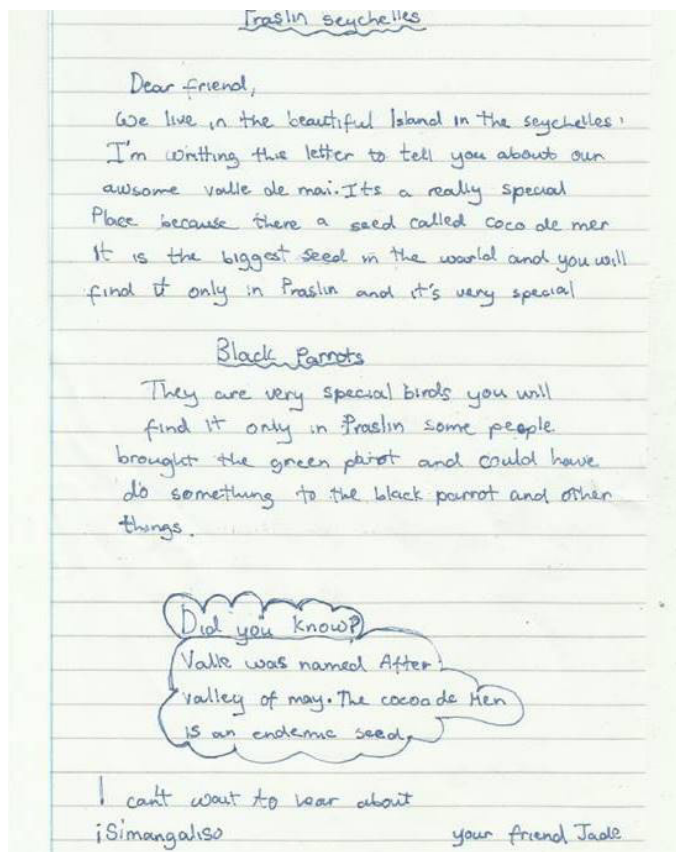 Praslin seychelles
Dear friend,
We live in the beautiful Island in the seychelles.
I'm writting this letter to tell you about our
awsome valle de mai. Its a really special
Place because there a seed called coco de mer
It is the biggest seed in the world and you will
find it only in Praslin and it's very special
Black Parrots
They are very special birds you will
find it only in Praslin some people
brought the green parot and could have
do something to the black parrot and other
things.
Did you know?
Valle was named After
valley of may. The cocoa de Mer
is an endemic seed.
I can't wait to hear about
iSimangaliso
your friend Jade